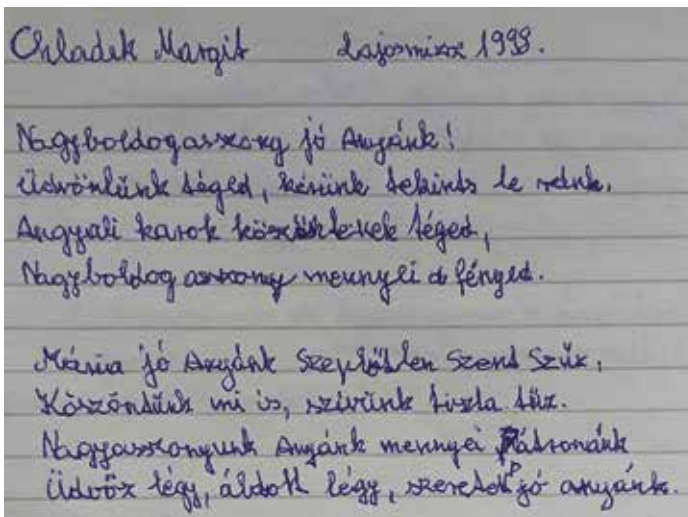 Chladek Margit Lajosmizse 1998.
Nagyboldogasszony jó Anyánk!
Üdvözlünk téged, kérünk tekints le reánk,
Angyali karok köszöntenek téged,
Nagyboldog asszony mennyei a fényed.
Mária jó Anyánk Szeplőtlen Szent Szűz,
Köszöntünk mi is, szívünk tiszta tűz.
Nagyasszonyunk Anyánk mennyei Pátronánk
Üdvöz légy, áldott légy, szerető jó anyánk.